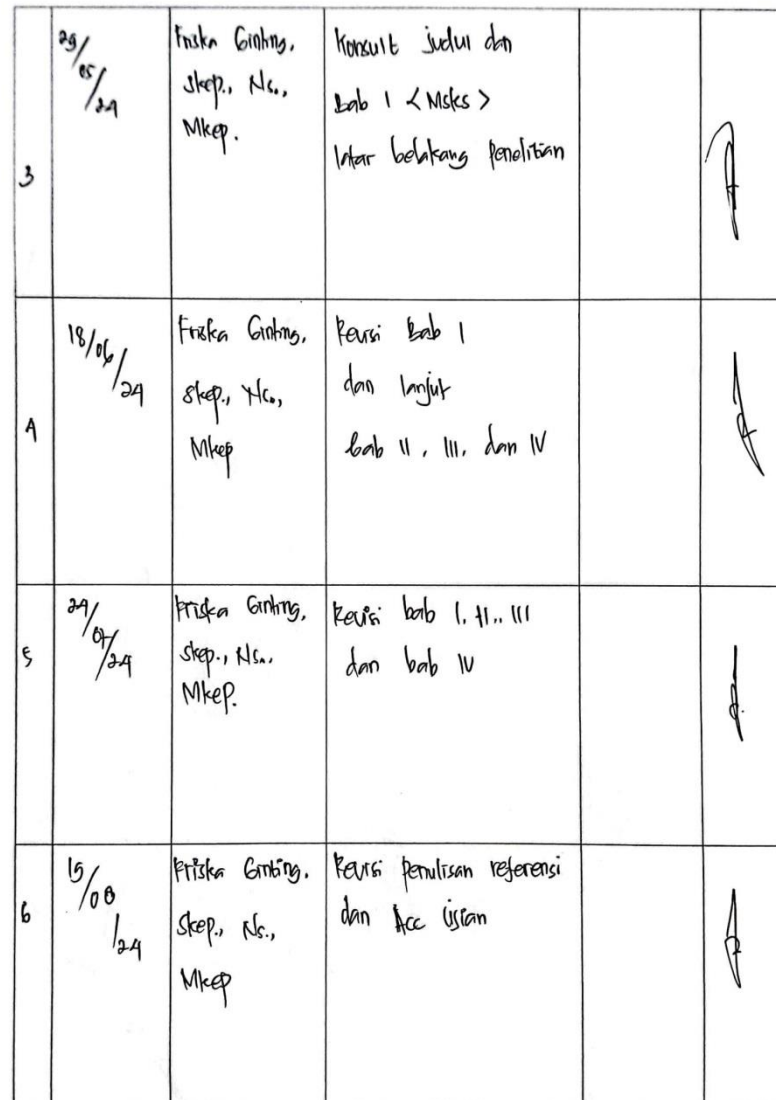 3
29/05/24
Friska Ginting,
Skep., Ns.,
Mkep.
Konsult judul dan
Bab 1 <Msks>
latar belakang penelitian
4
18/06/24
Friska Ginting,
Skep., Ns.,
Mkep
Revisi Bab I
dan lanjut
bab II, III, dan IV
5
24/07/24
Friska Ginting,
Skep., Ns.,
Mkep.
Revisi bab I, II, III
dan bab IV
6
15/08/24
Friska Ginting,
Skep., Ns.,
Mkep
Revisi penulisan referensi
dan Acc